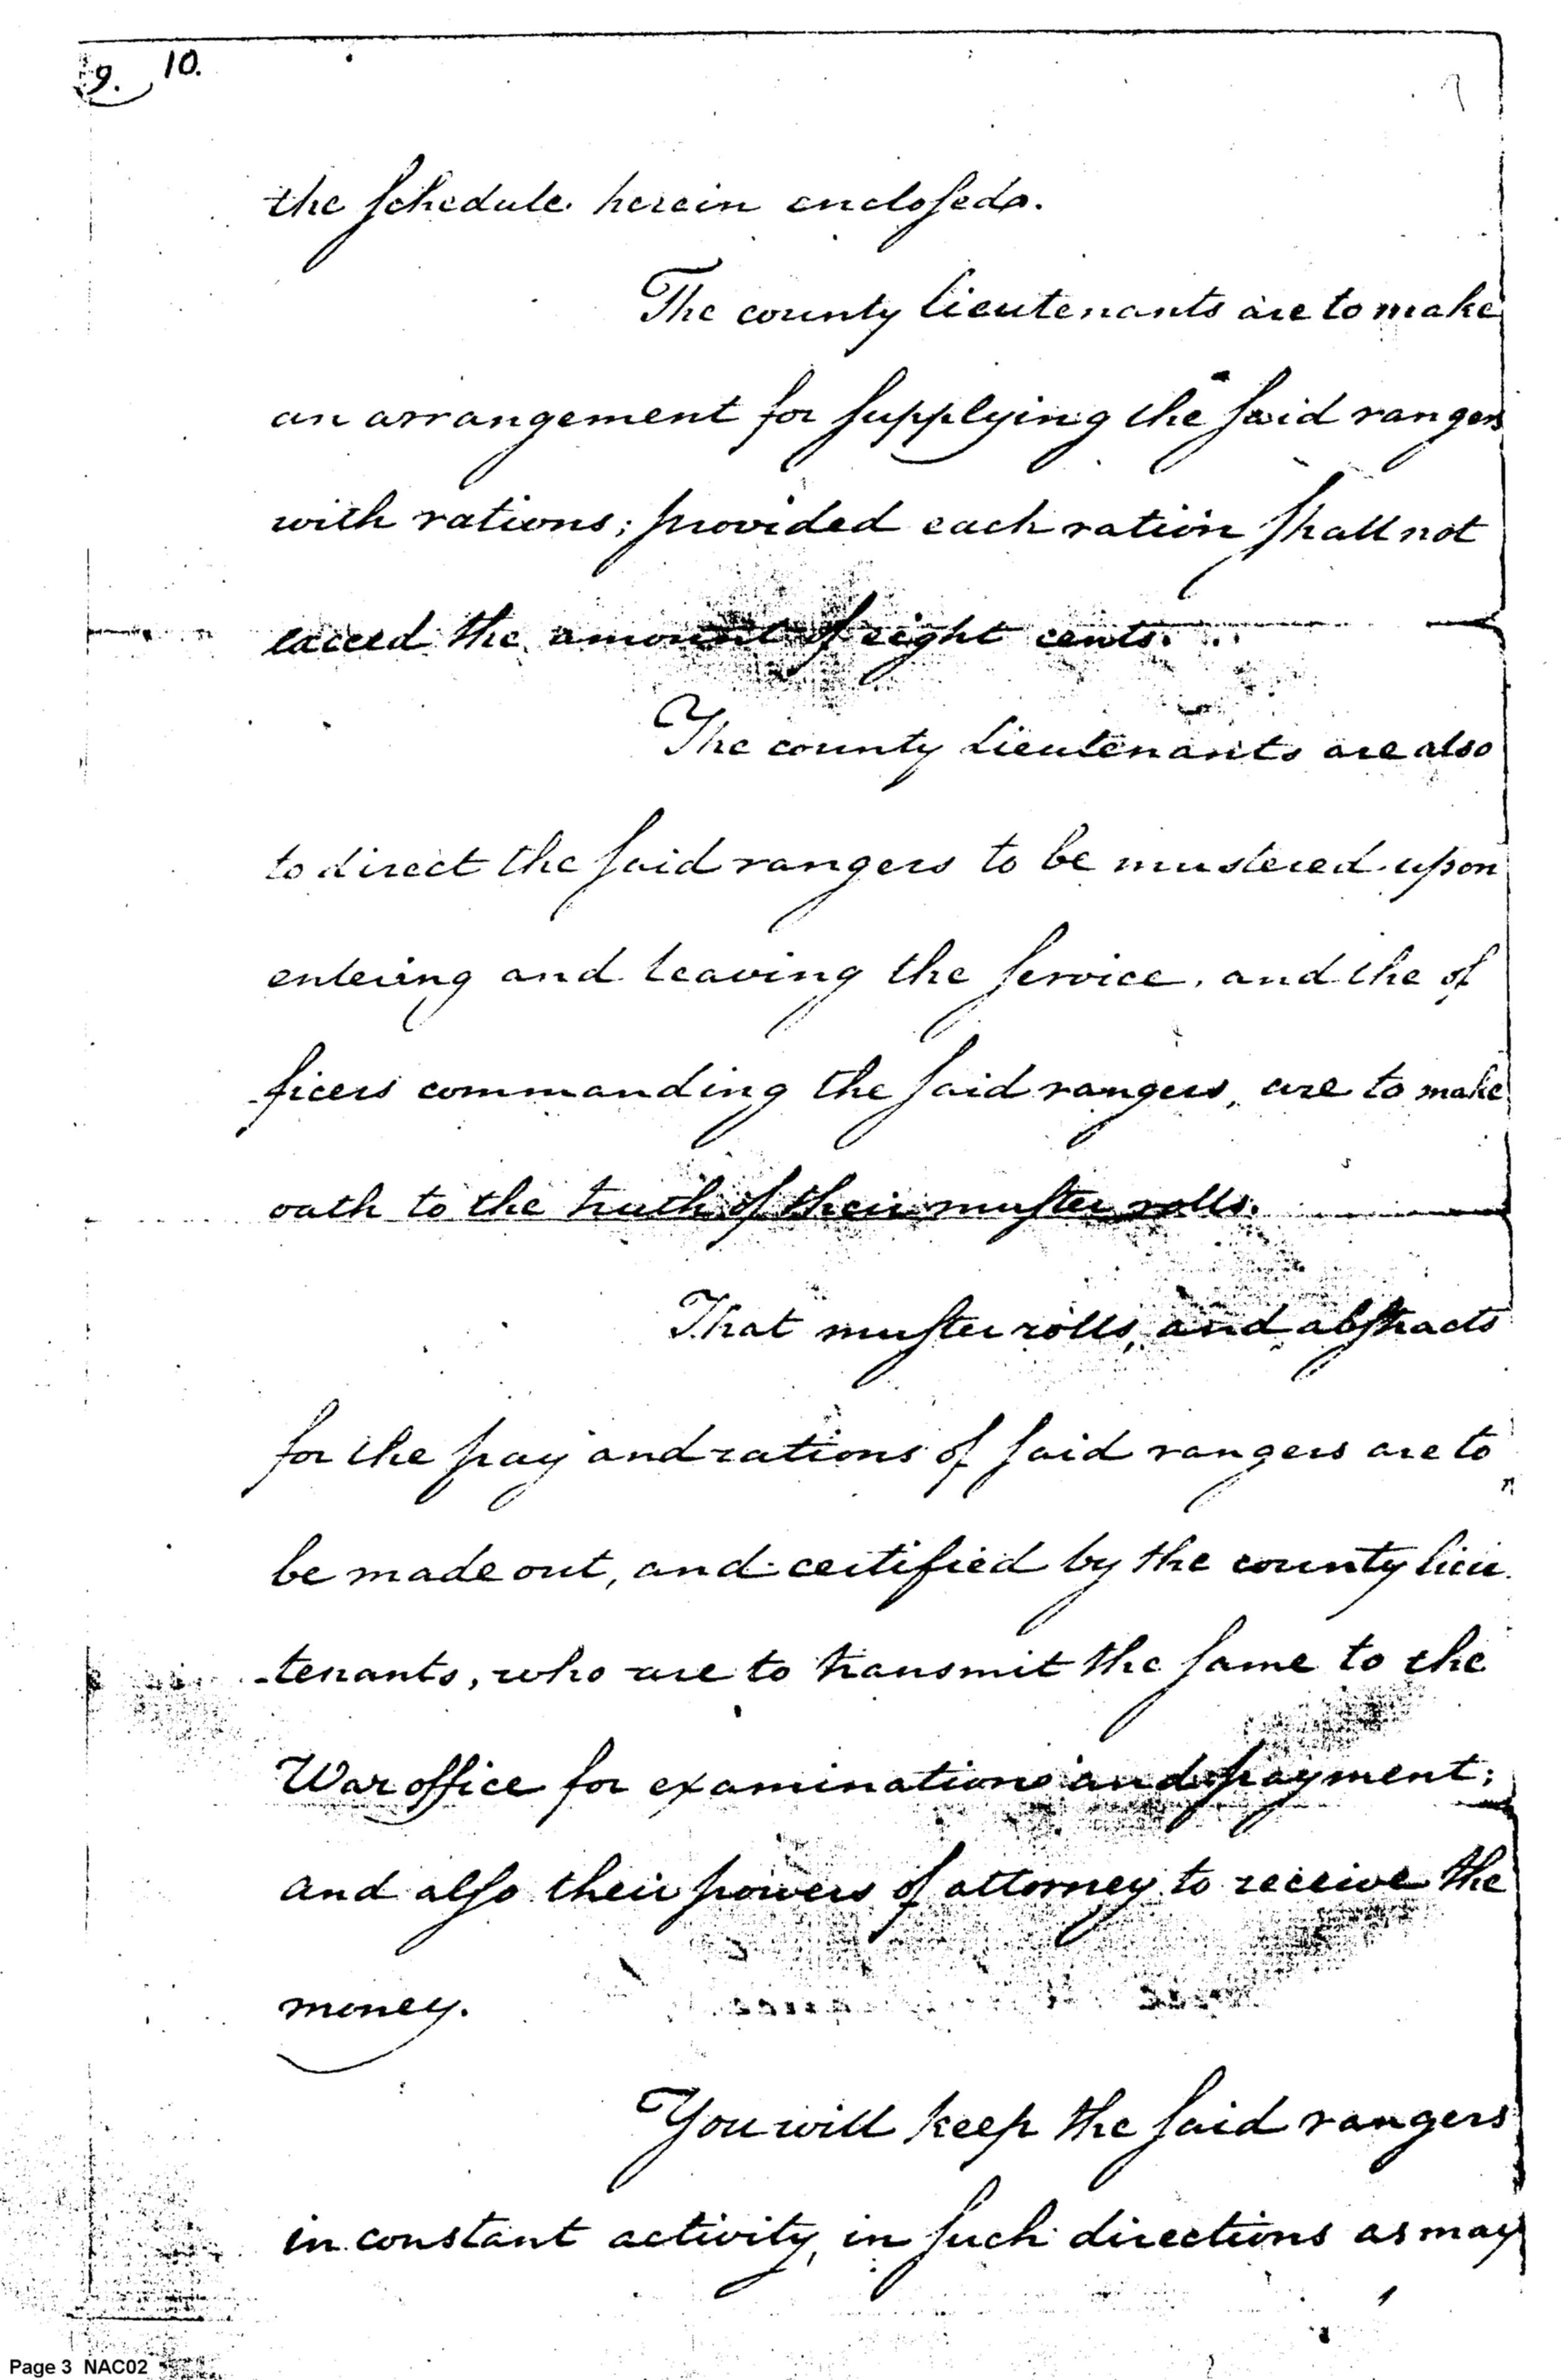 9. 10.
the schedule herein enclosed.
The county lieutenants are to make
an arrangement for supplying the said rangers
with rations; provided each ration shall not
exceed the amount of eight cents.
The county lieutenants are also
to direct the said rangers to be mustered upon
entering and leaving the service, and the of
ficers commanding the said rangers, are to make
oath to the truth of their muster rolls.
That muster rolls, and abstracts
for the pay and rations of said rangers are to
be made out, and certified by the county lieu
-tenants, who are to transmit the same to the
War office for examination and payment;
and also their powers of attorney to receive the
money.
You will keep the said rangers
in constant activity, in such directions as may
Page 3 NAC02